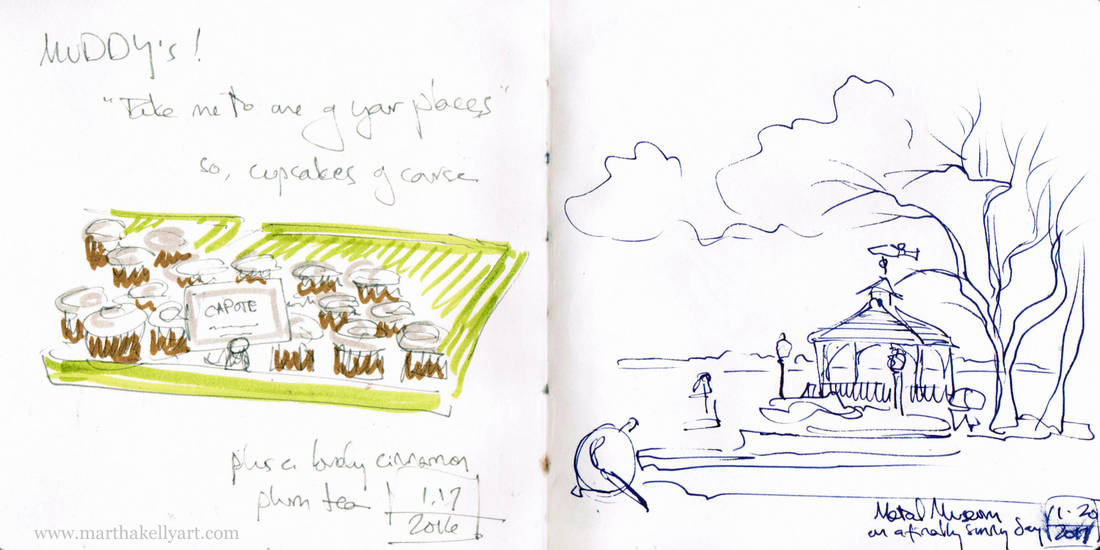 MUDDY's!
"Take me to one of your places"
so, cupcakes of course
CAPOTE
plus a lovely cinnamon
plum tea
1.17
2016
www.marthakellyart.com
Metal Museum
on a finally sunny day
1.20